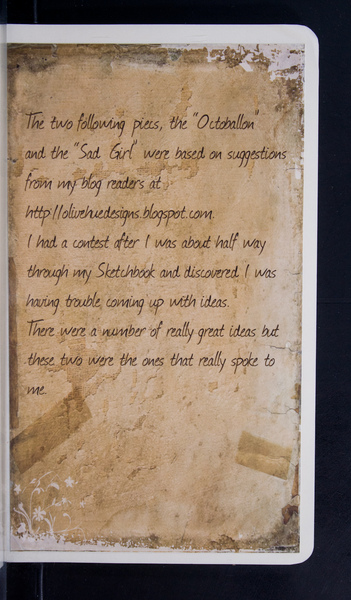 The two following piecs, the "Octoballon"
and the "Sad Girl" were based on suggestions
from my blog readers at
http://olivehuedesigns.blogspot.com.
I had a contest after I was about half way
through my Sketchbook and discovered I was
having trouble coming up with ideas.
There were a number of really great ideas but
these two were the ones that really spoke to
me.